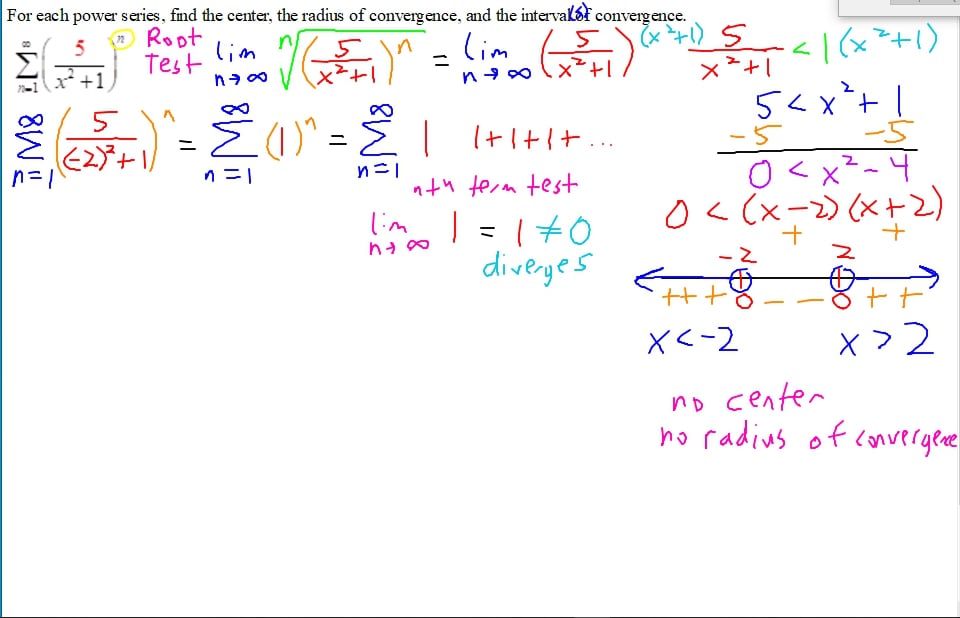 For each power series, find the center, the radius of convergence, and the interval(s) of convergence.
∞ Σ n=1 (5/(x²+1))^n Root Test lim n→∞ ⁿ√(5/(x²+1))^n = lim n→∞ (5/(x²+1)) (x²+1) 5/(x²+1) < 1 (x²+1)
5 < x² + 1
-5 -5
0 < x² - 4
0 < (x-2)(x+2)
+ +
∞ Σ n=1 (5/((-2)²+1))^n = ∞ Σ n=1 (1)^n = ∞ Σ n=1 1 1+1+1+...
nth term test
lim n→∞ 1 = 1 ≠ 0
diverges
-2 2
+++ 0 - - - 0 + +
x<-2 x>2
no center
no radius of convergence